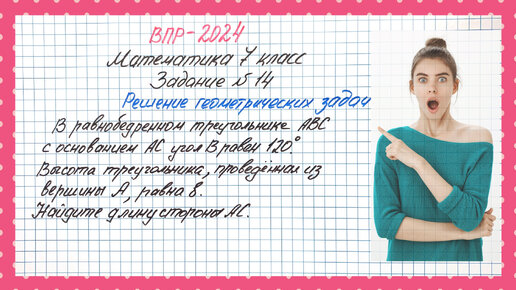 ВПР-2024
Математика 7 класс
Задание №14
Решение геометрических задач
В равнобедренном треугольнике АВС
с основанием АС угол В равен 120°
Высота треугольника, проведённая из
вершины А, равна 8.
Найдите длину стороны АС.